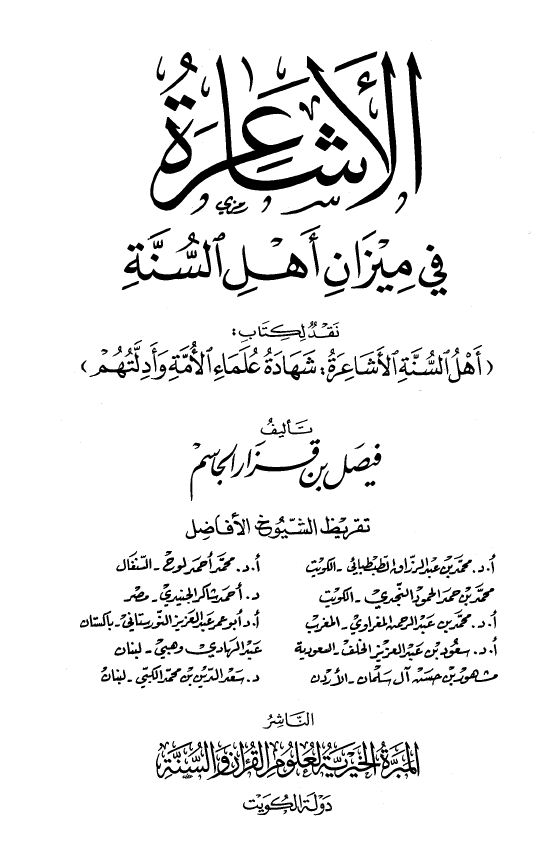 الأَشَاعِرَةُ
رمزي
فِي مِيزَانِ أَهْلِ السُّنَّةِ
نَقْدٌ لِكِتَابِ:
(أَهْلُ السُّنَّةِ الأَشَاعِرَةُ: شَهَادَةُ عُلَمَاءِ الأُمَّةِ وَأَدِلَّتُهُمْ)
تَأليفُ
فيصل بن قزار الجاسم
تقريظ الشيوخ الأفاضل
أ.د. محمد بن عبد الرزاق الطبطبائي - الكويت
أ.د. محمد أحمد لوح - السنغال
محمد بن حمد الحمود النجدي - الكويت
د. أحمد شاكر الجنيدي - مصر
أ.د. محمد بن عبد الرحمن المغراوي - المغرب
أ.د أبو عمر عبد العزيز النورستاني - باكستان
أ.د. سعود بن عبد العزيز الخلف - السعودية
عبد الهادي وهبي - لبنان
مشهور بن حسن آل سلمان - الأردن
د. سعد الدين بن محمد الكبي - لبنان
الناشر
المبرة الخيرية لعلوم القرآن والسنة
دولة الكويت